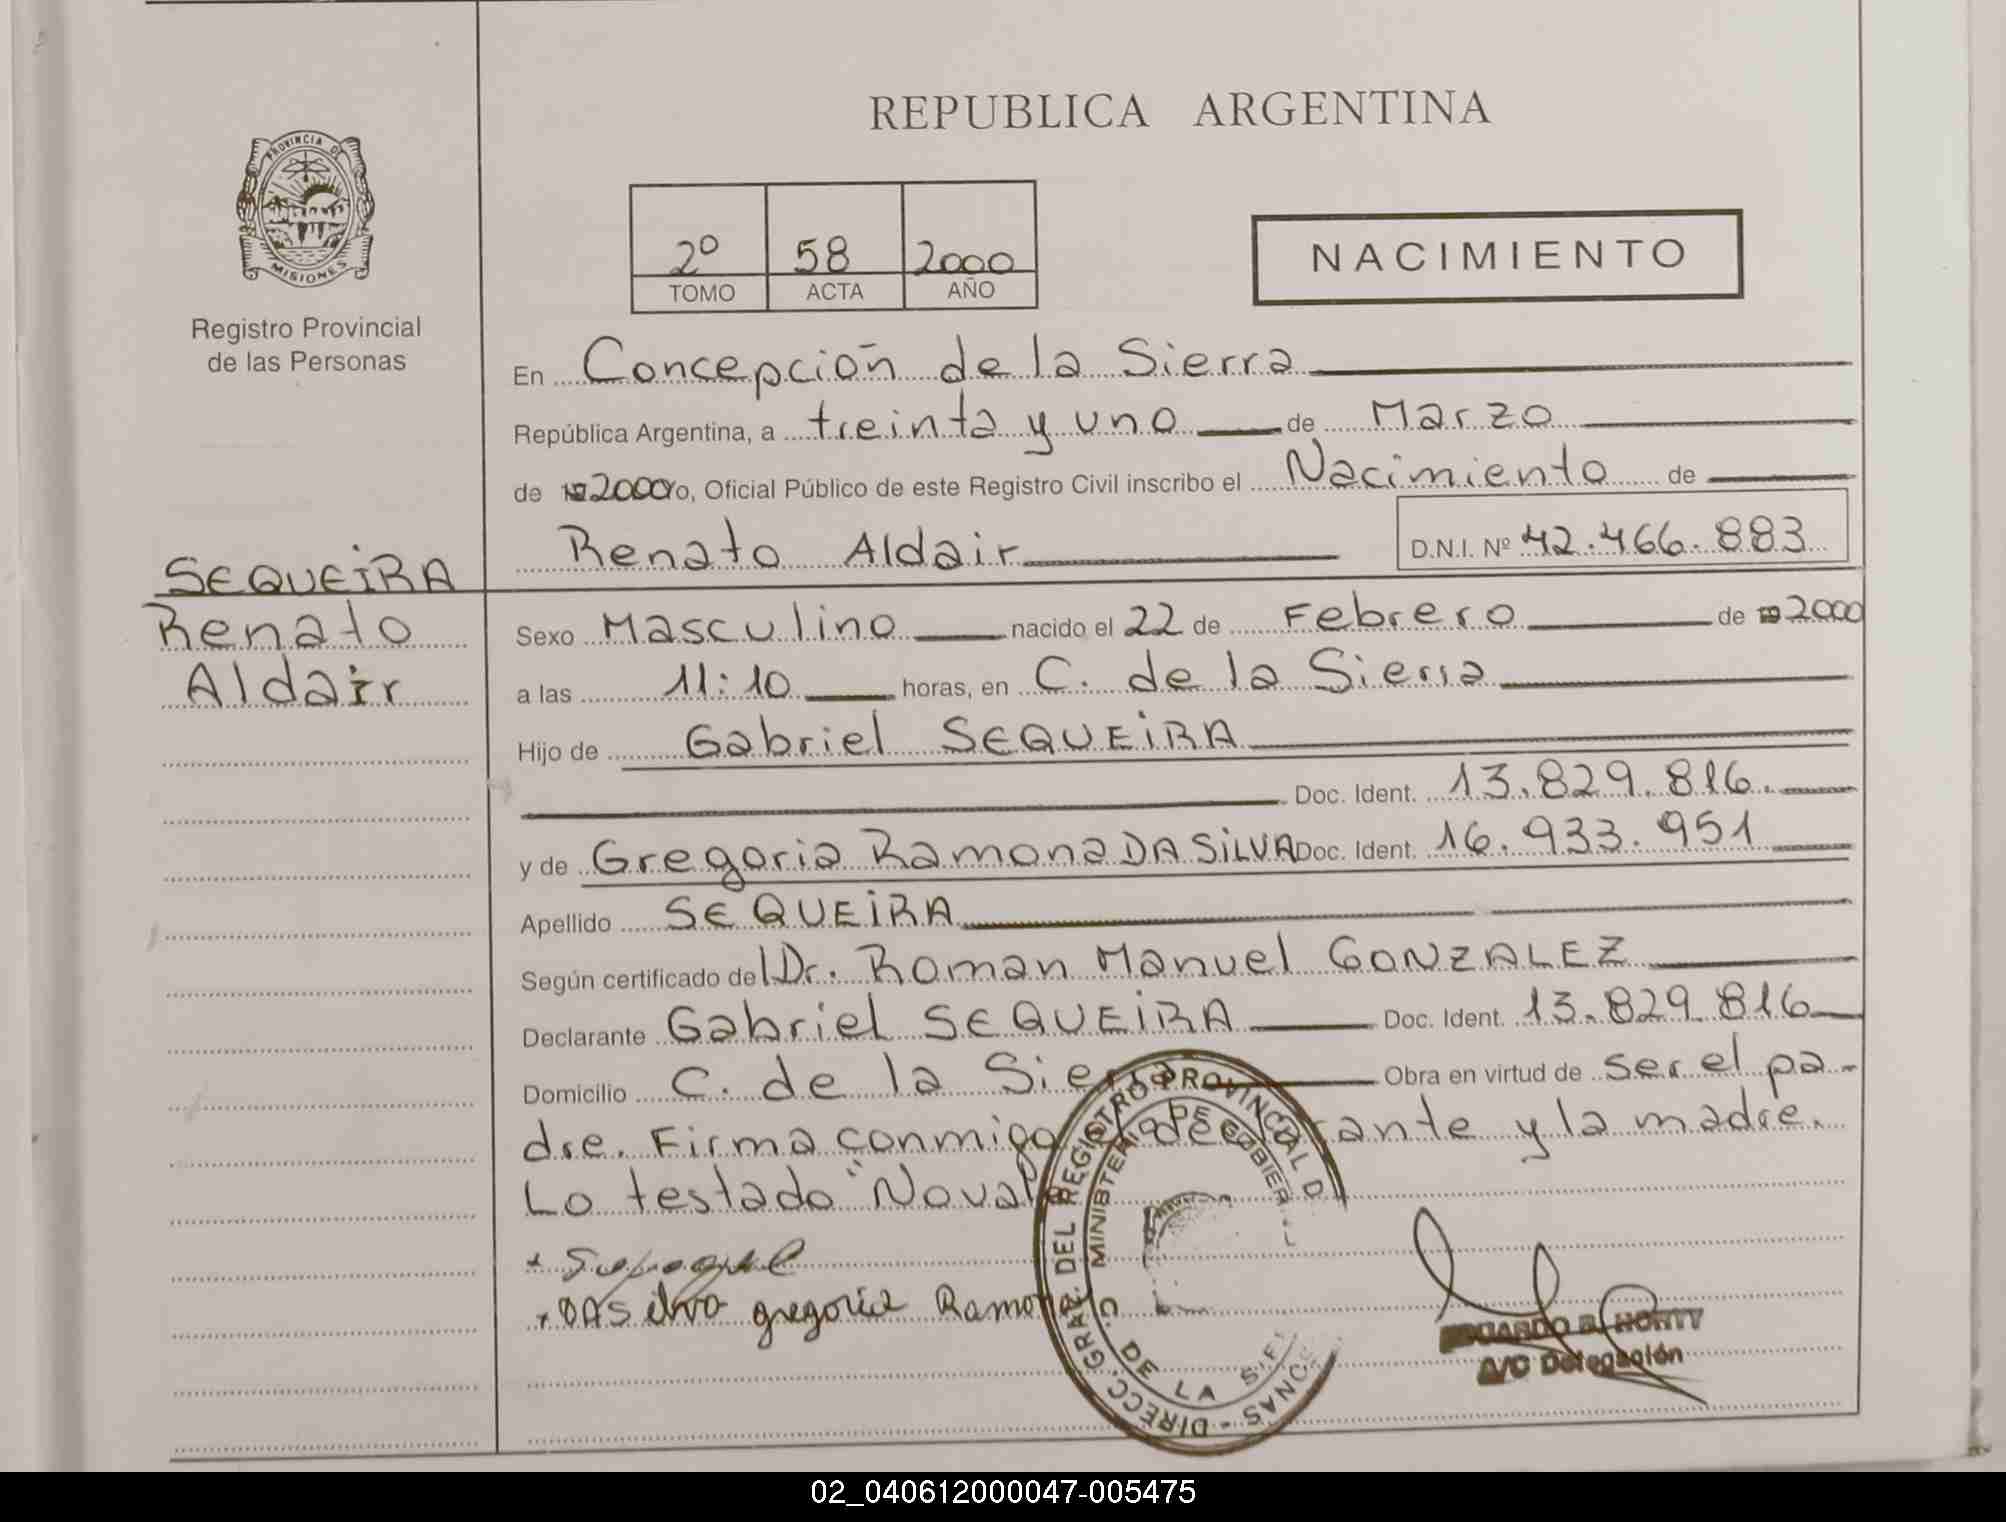 REPUBLICA ARGENTINA
PROVINCIA DE
MISIONES
Registro Provincial
de las Personas
2º 58 2000
TOMO ACTA AÑO
NACIMIENTO
En Concepción de la Sierra
República Argentina, a treinta y uno de Marzo
de 19 2000 yo, Oficial Público de este Registro Civil inscribo el Nacimiento de
Renato Aldair D.N.I. Nº 42.466.883
SEQUEIRA
Renato
Aldair
Sexo Masculino nacido el 22 de Febrero de 19 2000
a las 11:10 horas, en C. de la Sierra
Hijo de Gabriel SEQUEIRA
Doc. Ident. 13.829.816.
y de Gregoria Ramona DA SILVA Doc. Ident. 16.933.951
Apellido SEQUEIRA
Según certificado del Dr. Roman Manuel GONZALEZ
Declarante Gabriel SEQUEIRA Doc. Ident. 13.829.816
Domicilio C. de la Sierra Obra en virtud de ser el pa-
dre. Firma conmigo el declarante y la madre.
Lo testado "No vale
+ DA Silva gregoria Ramona
DIRECC. GRAL. DEL REGISTRO PROVINCIAL D
MINISTERIO DE GOBIER
C. DE LA
EDUARDO R. HORTT
A/C Delegación
02_040612000047-005475